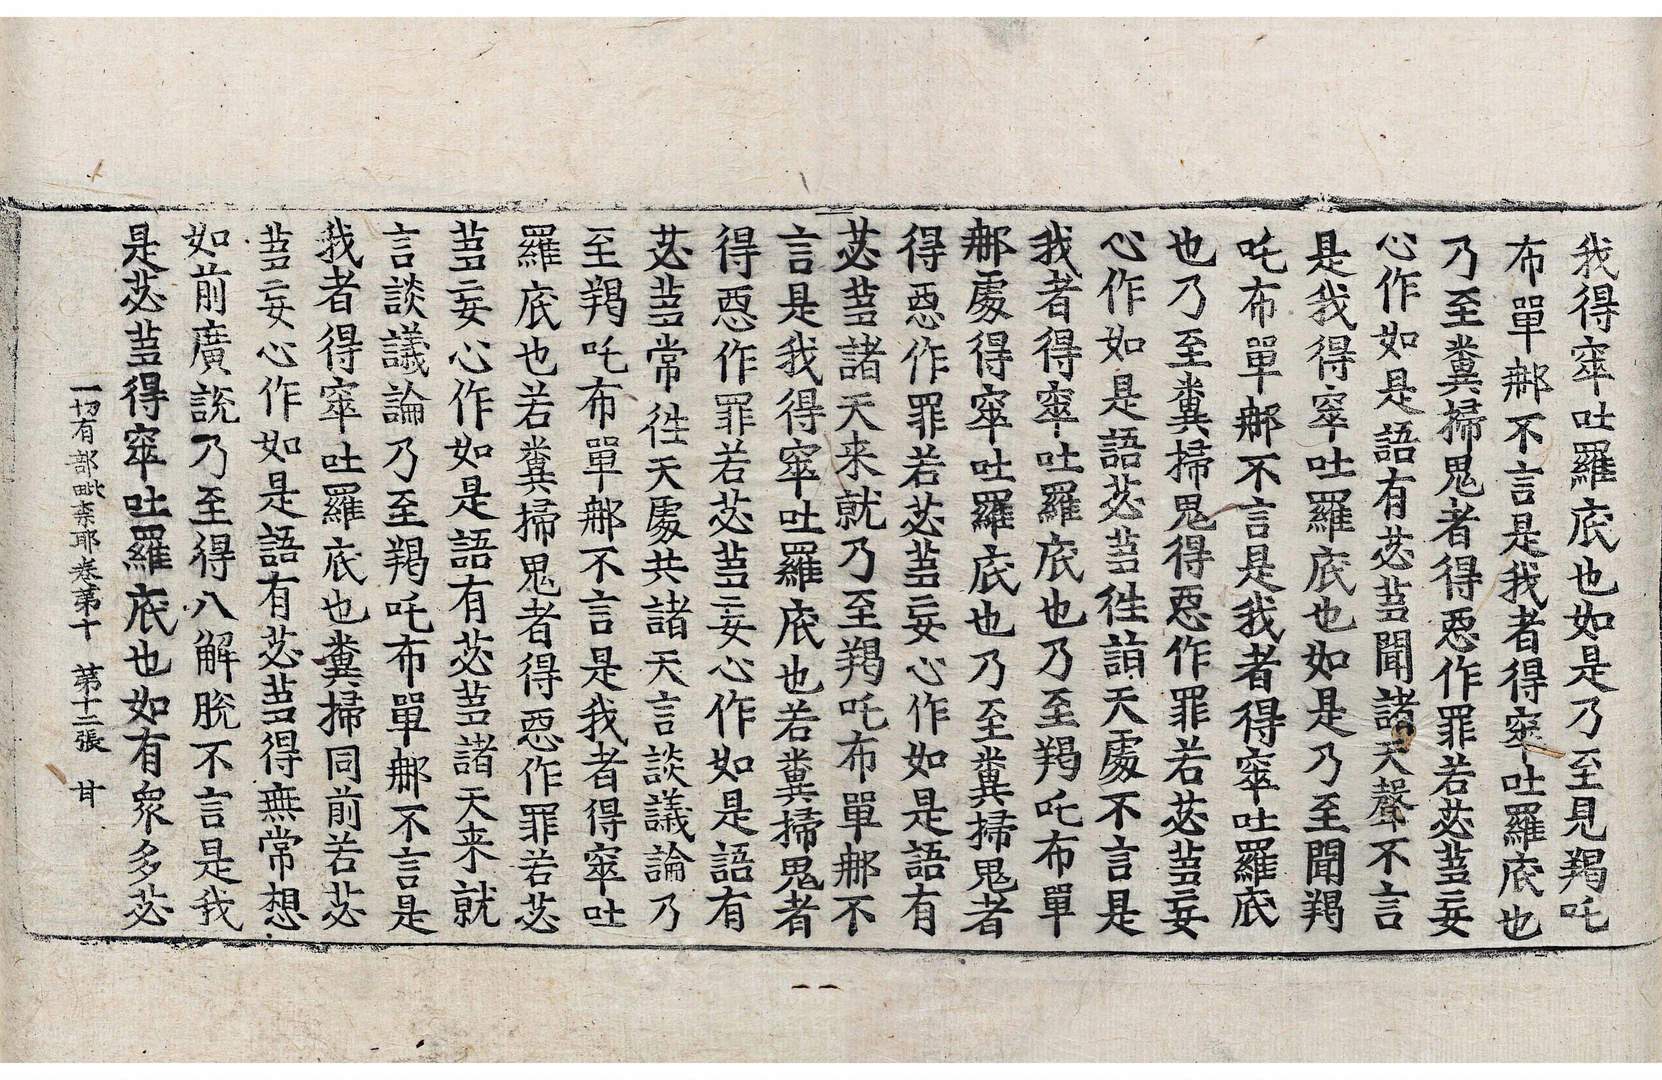 我得窣吐羅底也如是乃至見羯吒
布單那不言是我者得窣吐羅底也
乃至糞掃鬼者得惡作罪若苾芻妄
心作如是語有苾芻聞諸天聲不言
是我得窣吐羅底也如是乃至聞羯
吒布單那不言是我者得窣吐羅底
也乃至糞掃鬼得惡作罪若苾芻妄
心作如是語苾芻往詣天處不言是
我者得窣吐羅底也乃至羯吒布單
那處得窣吐羅底也乃至糞掃鬼者
得惡作罪若苾芻妄心作如是語有
苾芻諸天来就乃至羯吒布單那不
言是我得窣吐羅底也若糞掃鬼者
得惡作罪若苾芻妄心作如是語有
苾芻常往天處共諸天言談議論乃
至羯吒布單那不言是我者得窣吐
羅底也若糞掃鬼者得惡作罪若苾
芻妄心作如是語有苾芻諸天来就
言談議論乃至羯吒布單那不言是
我者得窣吐羅底也糞掃同前若苾
芻妄心作如是語有苾芻得無常想
如前廣說乃至得八解脫不言是我
是苾芻得窣吐羅底也如有衆多苾
一切有部毗柰耶卷第十 第十二張 甘